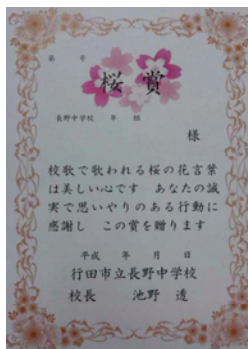 第　号
桜賞
長野中学校　年　組
様
校歌で歌われる桜の花言葉
は美しい心です　あなたの誠
実で思いやりのある行動に
感謝し　この賞を贈ります
平成　年　月　日
行田市立長野中学校
校長　池野　透